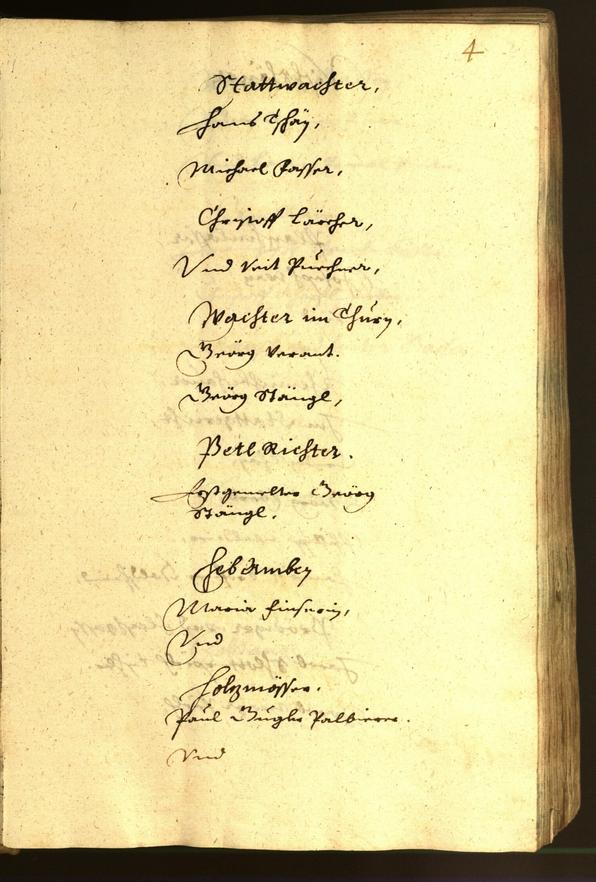 4
Stattwachter,
Hanns Tschäy,
Michael Passer,
Christoff Lärcher,
Vnd Veit Purchner,
Wachter im Thurn,
Geörg Verant.
Geörg Stängl,
Petl Richter.
Erstgemelter Geörg
Stängl.
Heb Amben
Maria
Vnd
Holzmösser.
Paul Gugler Palbierer.
Vnd